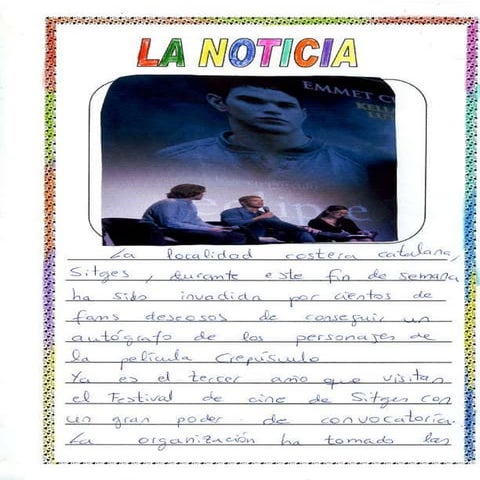 LA NOTICIA
EMMET CU
KELL
LUT
eclipse
La localidad costera catalana,
Sitges, durante este fin de semana
ha sido invadida por cientos de
fans deseosos de conseguir un
autógrafo de los personajes de
la película Crepúsculo
Ya es el tercer año que visitan
el Festival de cine de Sitges con
un gran poder de convocatoria.
La organización ha tomado las